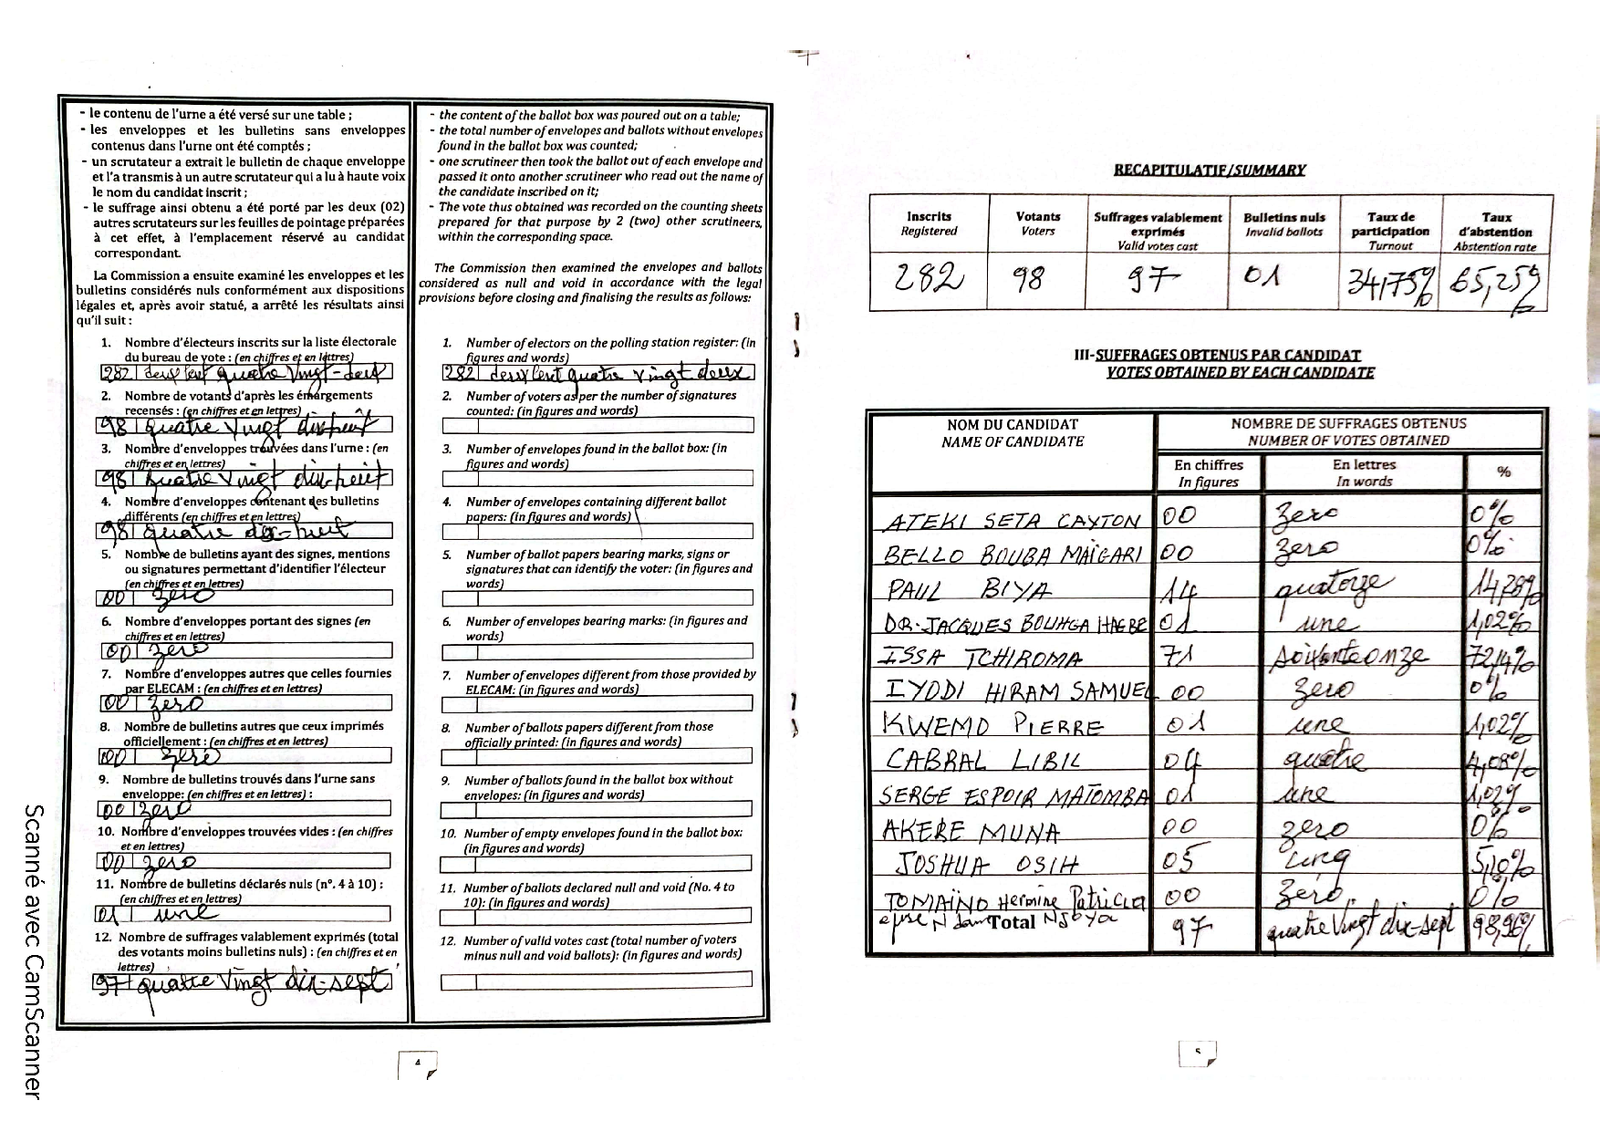 - le contenu de l'urne a été versé sur une table ;
- les enveloppes et les bulletins sans enveloppes
contenus dans l'urne ont été comptés ;
- un scrutateur a extrait le bulletin de chaque enveloppe
et l'a transmis à un autre scrutateur qui a lu à haute voix
le nom du candidat inscrit ;
- le suffrage ainsi obtenu a été porté par les deux (02)
autres scrutateurs sur les feuilles de pointage préparées
à cet effet, à l'emplacement réservé au candidat
correspondant.
La Commission a ensuite examiné les enveloppes et les
bulletins considérés nuls conformément aux dispositions
légales et, après avoir statué, a arrêté les résultats ainsi
qu'il suit :
1. Nombre d'électeurs inscrits sur la liste électorale
du bureau de vote : (en chiffres et en lettres)
282 deux cent quatre vingt-deux
2. Nombre de votants d'après les émargements
recensés : (en chiffres et en lettres)
98 quatre vingt dix huit
3. Nombre d'enveloppes trouvées dans l'urne : (en
chiffres et en lettres)
98 quatre vingt dix-huit
4. Nombre d'enveloppes contenant des bulletins
différents (en chiffres et en lettres)
98 quatre dix-huit
5. Nombre de bulletins ayant des signes, mentions
ou signatures permettant d'identifier l'électeur
(en chiffres et en lettres)
00 zero
6. Nombre d'enveloppes portant des signes (en
chiffres et en lettres)
00 zero
7. Nombre d'enveloppes autres que celles fournies
par ELECAM : (en chiffres et en lettres)
00 zero
8. Nombre de bulletins autres que ceux imprimés
officiellement : (en chiffres et en lettres)
00 zero
9. Nombre de bulletins trouvés dans l'urne sans
enveloppe: (en chiffres et en lettres) :
00 zero
10. Nombre d'enveloppes trouvées vides : (en chiffres
et en lettres)
00 zero
11. Nombre de bulletins déclarés nuls (n°. 4 à 10) :
(en chiffres et en lettres)
01 une
12. Nombre de suffrages valablement exprimés (total
des votants moins bulletins nuls) : (en chiffres et en
lettres)
97 quatre vingt dix-sept
- the content of the ballot box was poured out on a table;
- the total number of envelopes and ballots without envelopes
found in the ballot box was counted;
- one scrutineer then took the ballot out of each envelope and
passed it onto another scrutineer who read out the name of
the candidate inscribed on it;
- The vote thus obtained was recorded on the counting sheets
prepared for that purpose by 2 (two) other scrutineers,
within the corresponding space.
The Commission then examined the envelopes and ballots
considered as null and void in accordance with the legal
provisions before closing and finalising the results as follows:
1. Number of electors on the polling station register: (in
figures and words)
282 deux cent quatre vingt deux
2. Number of voters as per the number of signatures
counted: (in figures and words)
3. Number of envelopes found in the ballot box: (in
figures and words)
4. Number of envelopes containing different ballot
papers: (in figures and words)
5. Number of ballot papers bearing marks, signs or
signatures that can identify the voter: (in figures and
words)
6. Number of envelopes bearing marks: (in figures and
words)
7. Number of envelopes different from those provided by
ELECAM: (in figures and words)
8. Number of ballots papers different from those
officially printed: (in figures and words)
9. Number of ballots found in the ballot box without
envelopes: (in figures and words)
10. Number of empty envelopes found in the ballot box:
(in figures and words)
11. Number of ballots declared null and void (No. 4 to
10): (in figures and words)
12. Number of valid votes cast (total number of voters
minus null and void ballots): (in figures and words)
4
RECAPITULATIF/SUMMARY
Inscrits Registered Votants Voters Suffrages valablement exprimés Valid votes cast Bulletins nuls Invalid ballots Taux de participation Turnout Taux d'abstention Abstention rate
282 98 97 01 34,75% 65,25%
III-SUFFRAGES OBTENUS PAR CANDIDAT
VOTES OBTAINED BY EACH CANDIDATE
NOM DU CANDIDAT NOMBRE DE SUFFRAGES OBTENUS
NAME OF CANDIDATE NUMBER OF VOTES OBTAINED
En chiffres En lettres %
In figures In words
ATEKI SETA CAXTON 00 zero 0%
BELLO BOUBA MAÏGARI 00 zero 0%
PAUL BIYA 14 quatorze 14,28%
DR. JACQUES BOUHGA HAGBE 01 une 1,02%
ISSA TCHIROMA 71 soixante onze 72,4%
IYODI HIRAM SAMUEL 00 zero 0%
KWEMO PIERRE 01 une 1,02%
CABRAL LIBIL 04 quatre 4,08%
SERGE ESPOIR MATOMBA 01 une 1,02%
AKERE MUNA 00 zero 0%
JOSHUA OSIH 05 cinq 5,10%
TOMAÏNO Hermine Patricia 00 zero 0%
epse Ndam Njoya
Total 97 quatre vingt dix-sept 98,96%
5
Scanné avec CamScanner